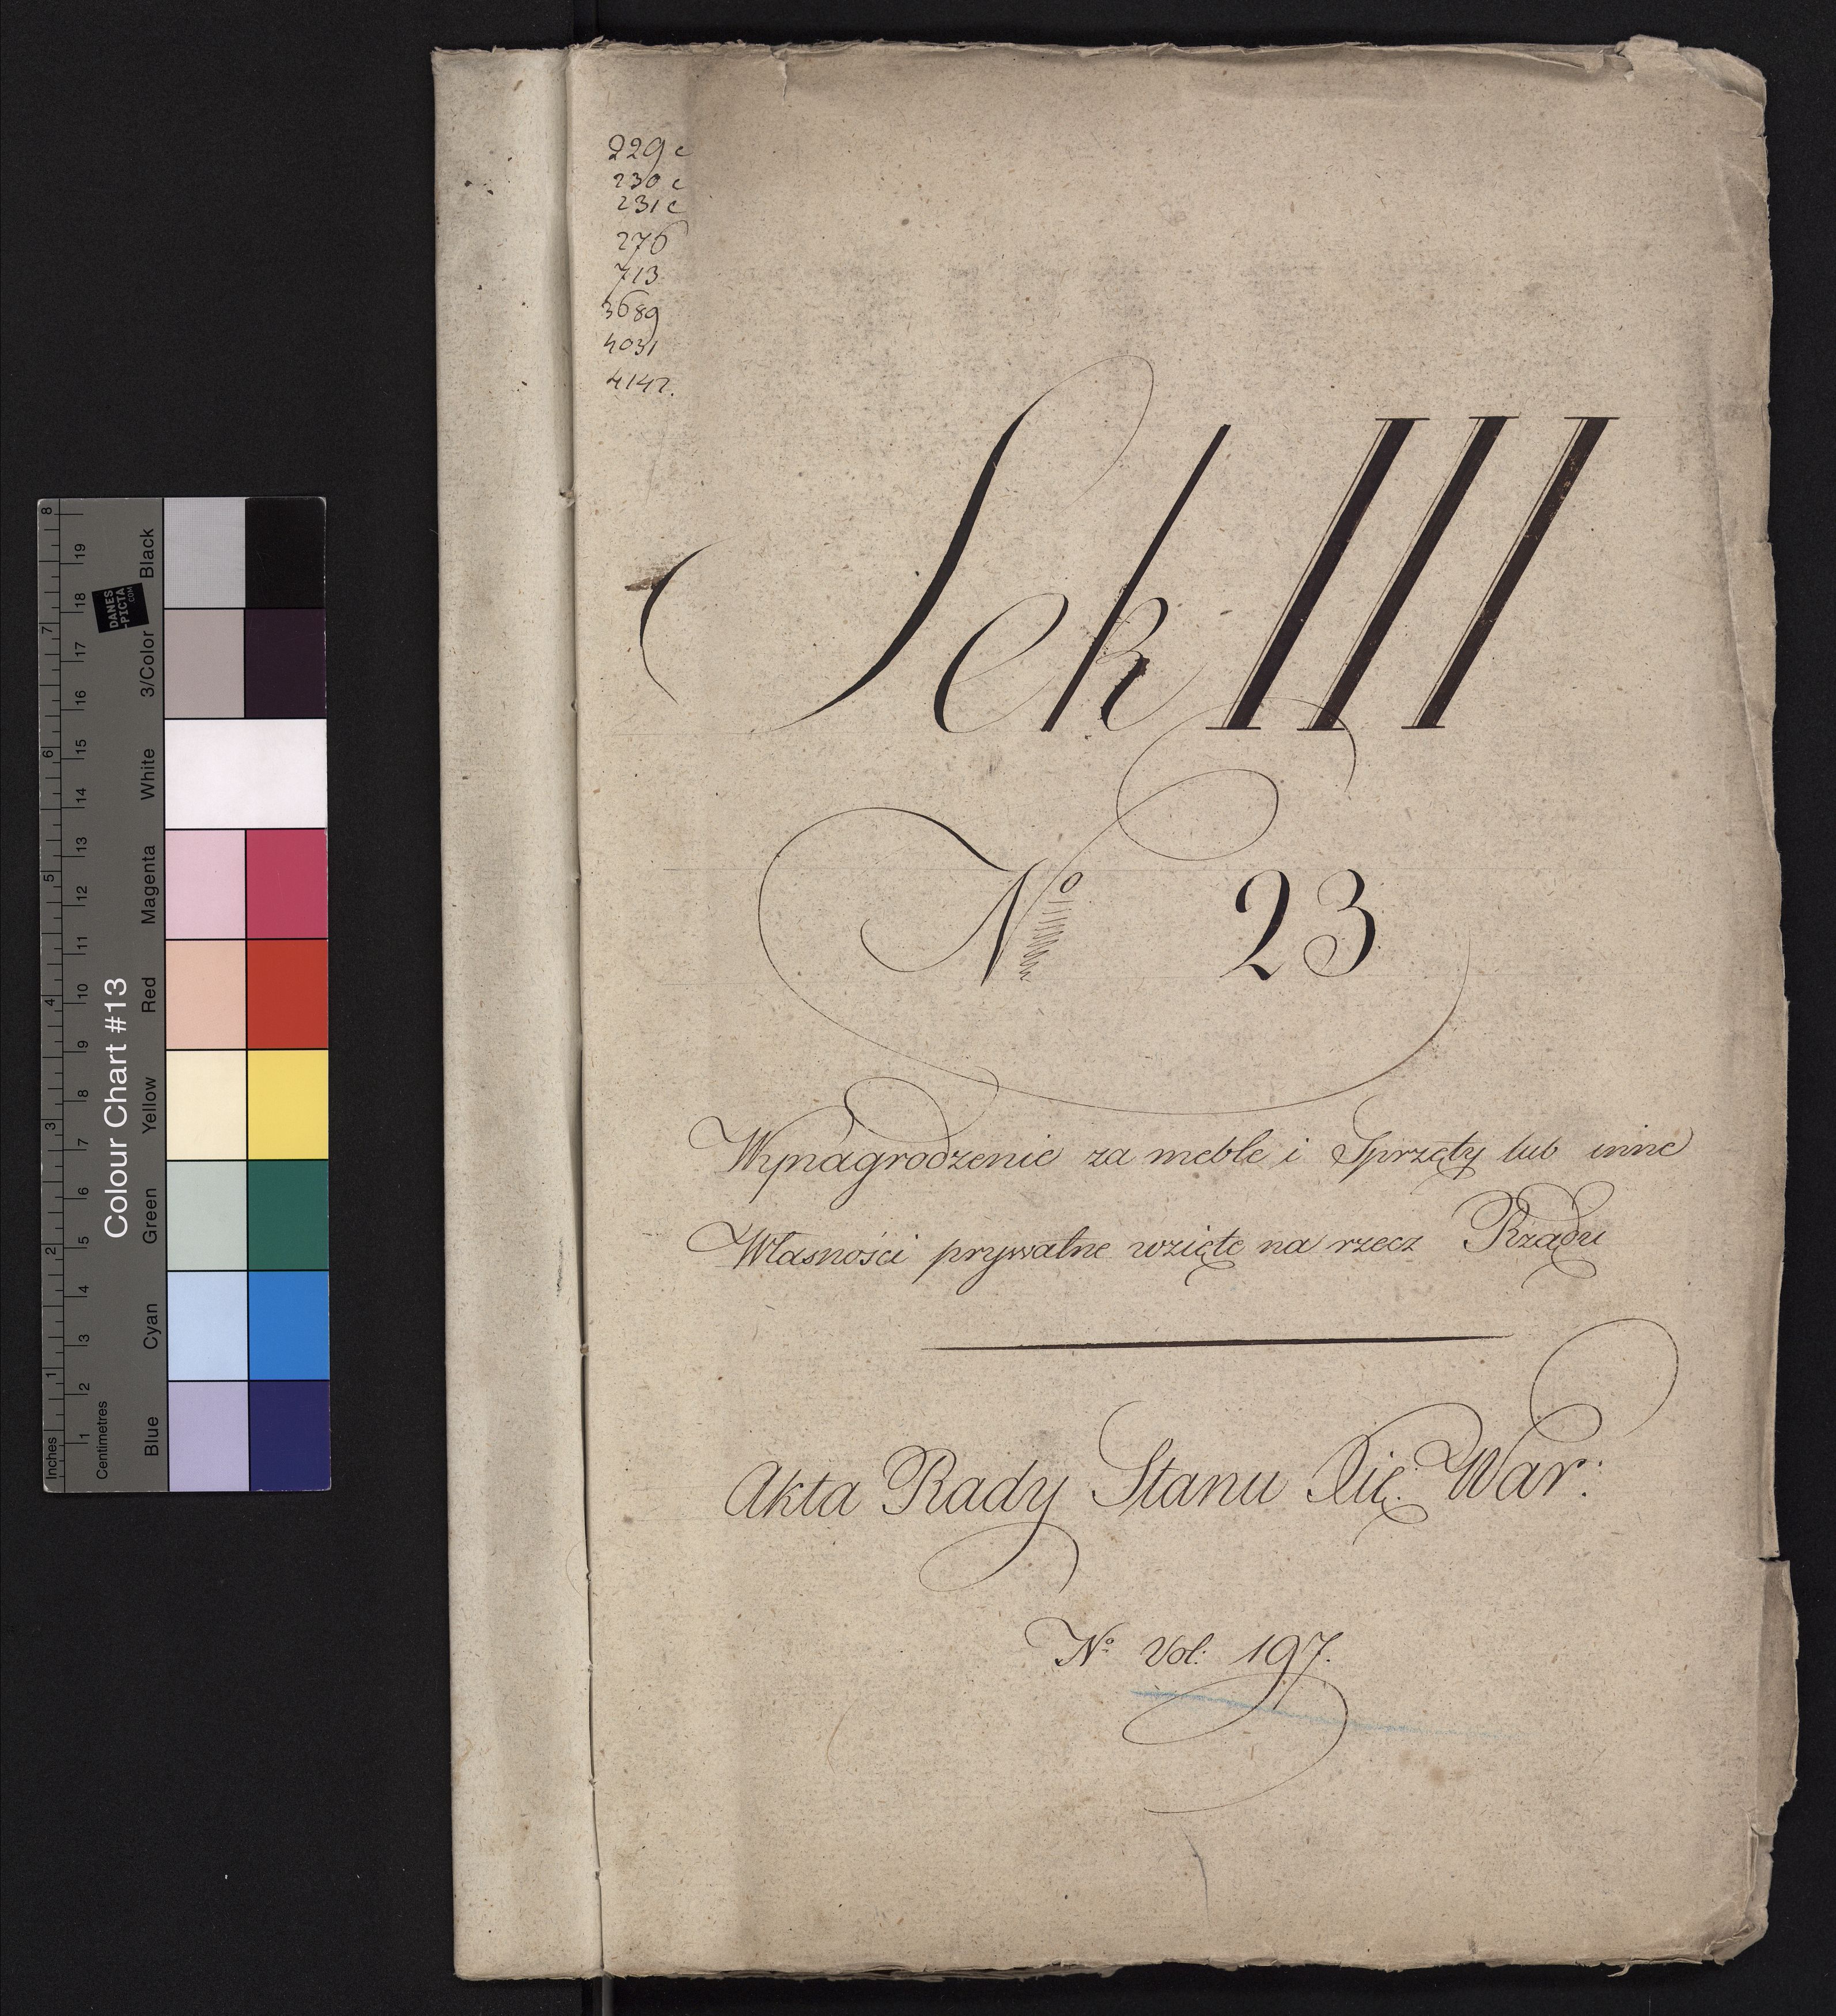 229 c
230 c
231 c
276
713
3689
4031
4142.
Sek III
No 23
Wynagrodzenie za meble i Sprzęty lub inne
Własności prywatne wzięte na rzecz Rządu
Akta Rady Stanu Xię: War:
No Vol: 197.
Colour Chart #13
Inches
Centimetres
1 2 3 4 5 6 7 8
1 2 3 4 5 6 7 8 9 10 11 12 13 14 15 16 17 18 19
Blue Cyan Green Yellow Red Magenta White 3/Color Black
DANES
-PICTA
.COM